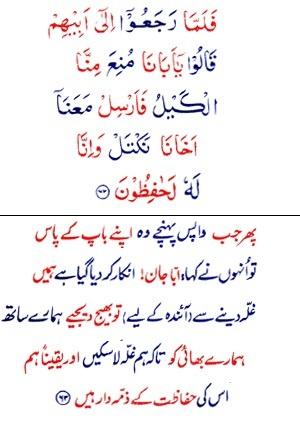 فَلَمَّا رَجَعُوْٓا اِلٰٓى اَبِيْهِمْ
قَالُوْا يٰٓاَبَانَا مُنِعَ مِنَّا
الْكَيْلُ فَاَرْسِلْ مَعَنَآ
اَخَانَا نَكْتَلْ وَاِنَّا
لَهٗ لَحٰفِظُوْنَ ﴿۶۳﴾
پھر جب واپس پہنچے وہ اپنے باپ کے پاس
تو اُنہوں نے کہا: ابّا جان! انکار کر دیا گیا ہے ہمیں
غلّہ دینے سے (آئندہ کے لیے) تو بھیج دیجیے ہمارے ساتھ
ہمارے بھائی کو تاکہ ہم غلّہ لا سکیں اور یقیناً ہم
اس کی حفاظت کے ذمّہ دار ہیں ﴿۶۳﴾